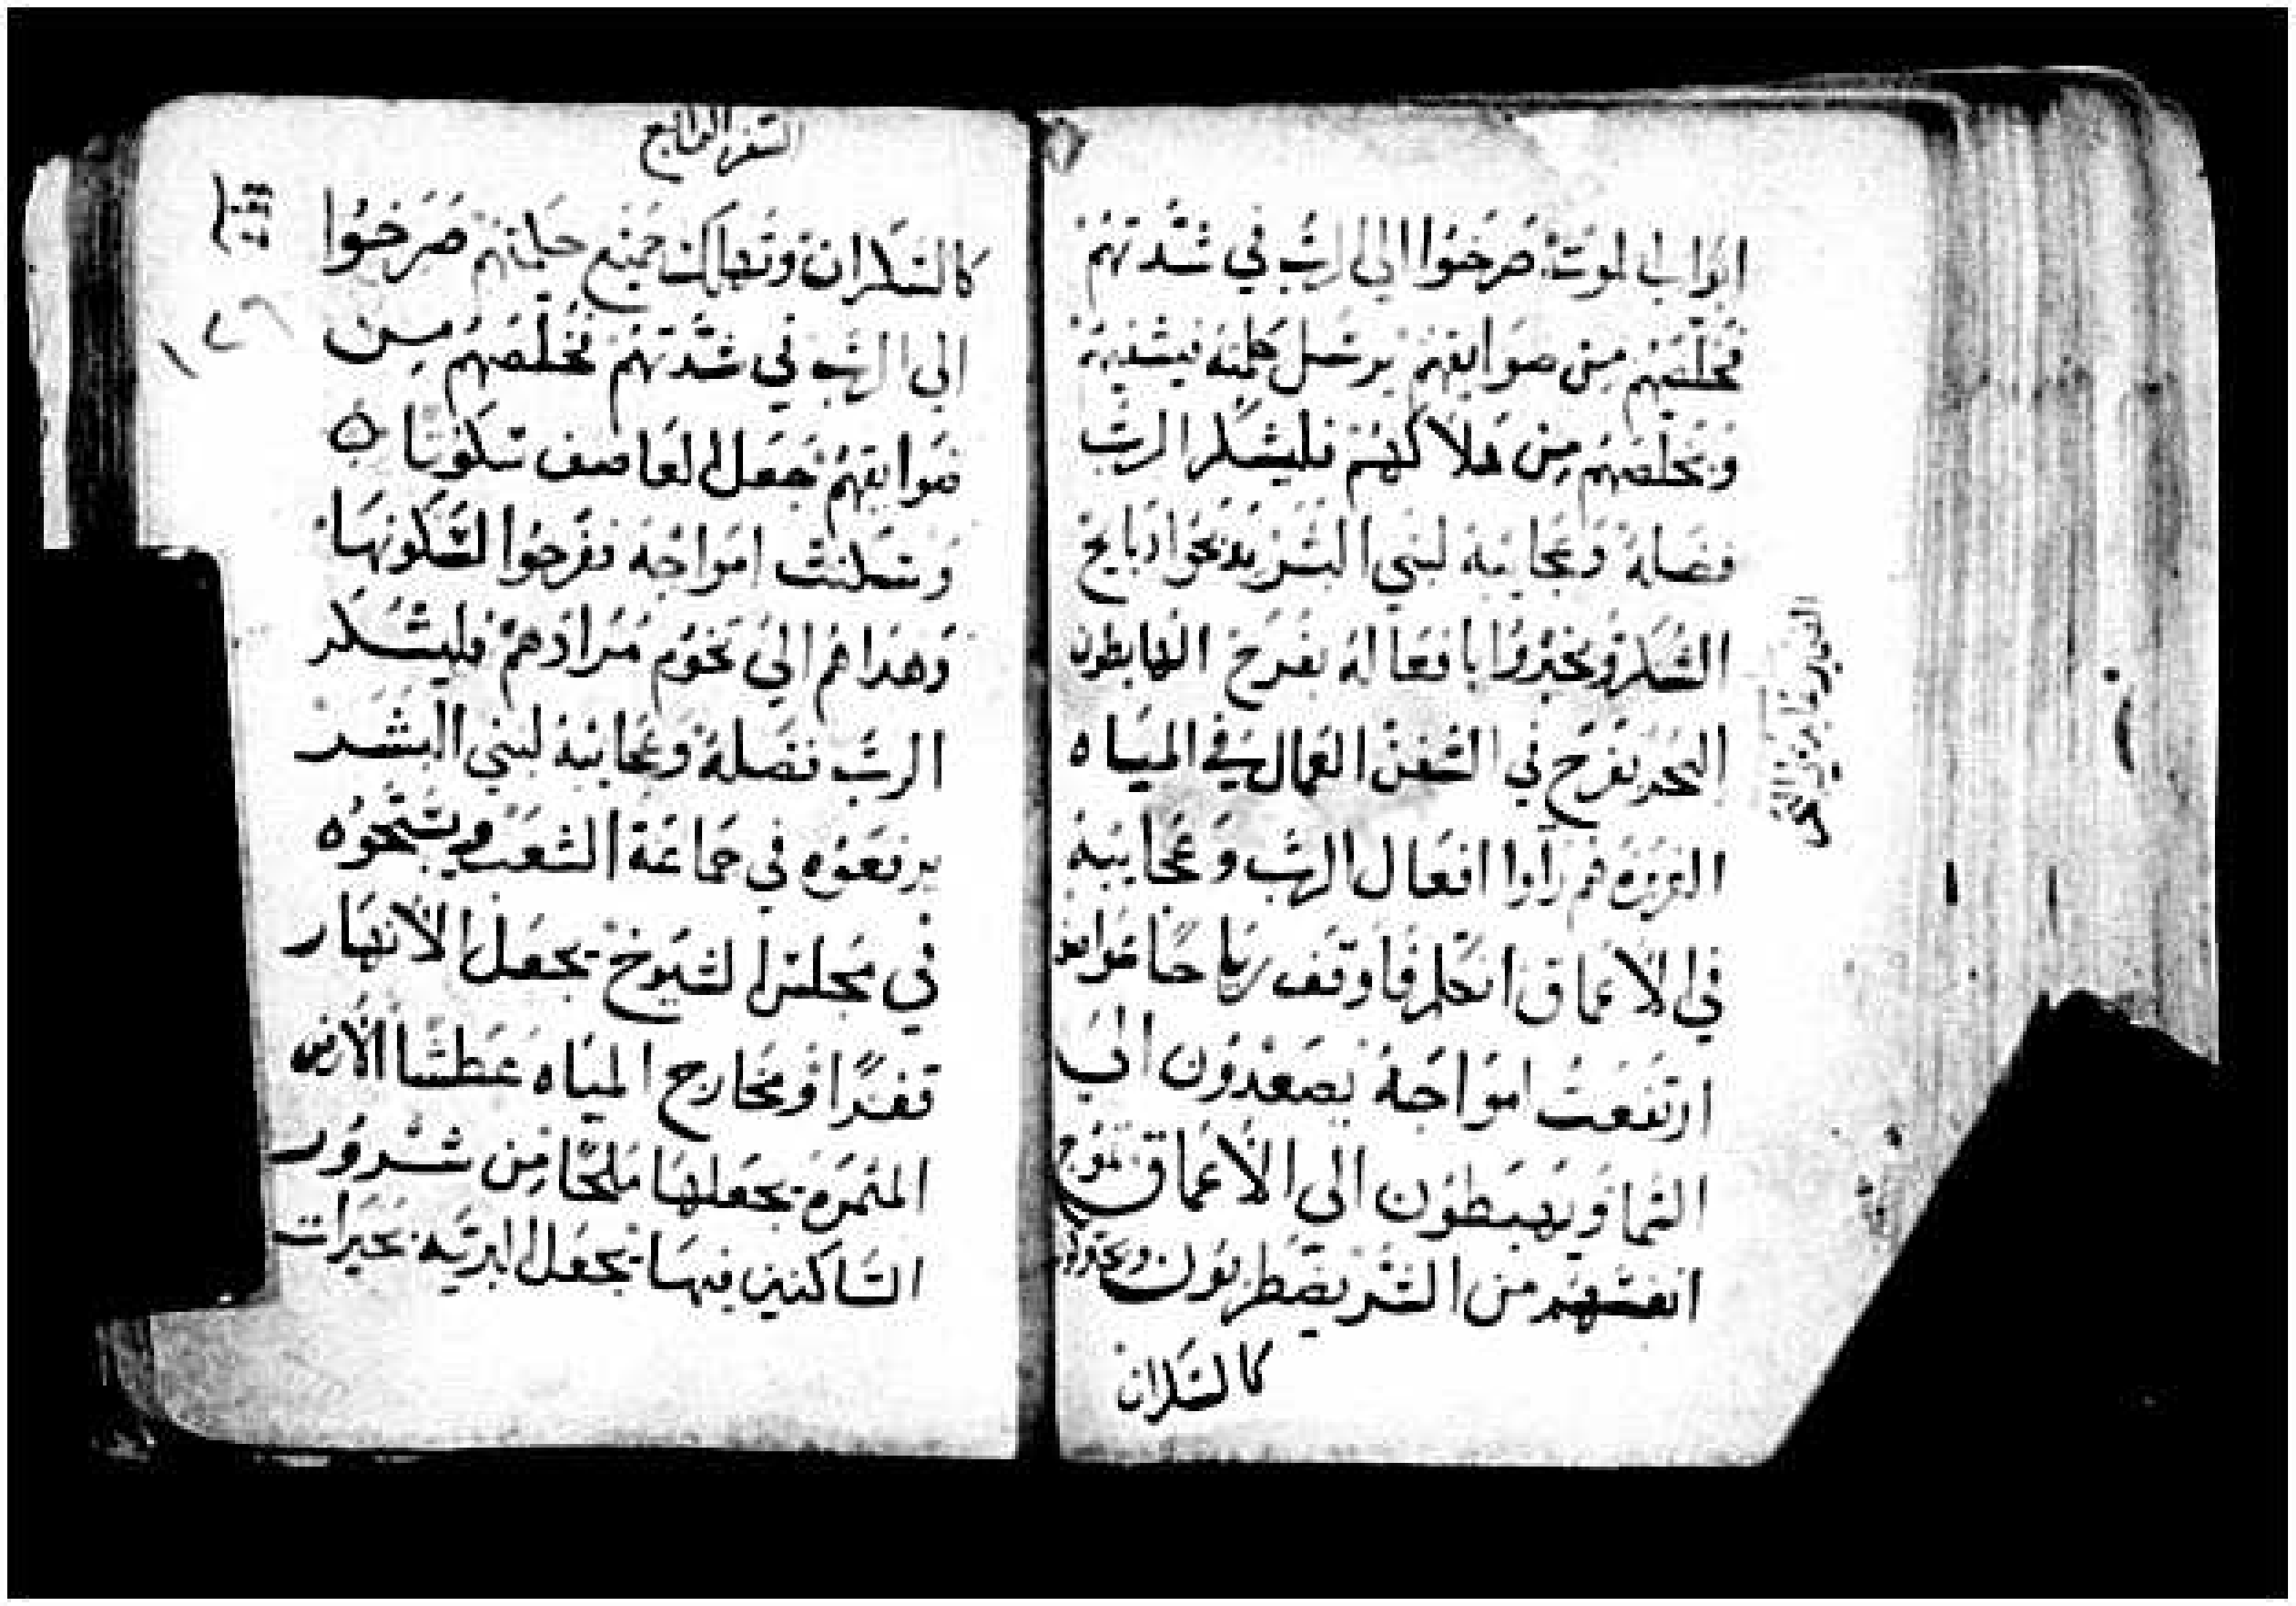 ابواب الموت صرخوا الى الرب في شدتهم
فخلصهم من ضوايقهم يرسل كلمته فيشفيهم
ويخلصهم من هلاكهم فليشكر الرب
فضله وعجايبه لبني البشر يذبحوا ذبايح
الشكر ويخبروا بافعاله بفرح الهابطون
البحر بفرح في السفن العمال في المياه
الغزيره هم راوا افعال الرب وعجايبه
في الاعماق تكلم فاوقف رياحا عواصف
ارتفعت امواجه يصعدون الى
السما ويهبطون الى الاعماق تموج
انفسهم من الشر يضطربون
كالسكران
السفر الرابع
كالسكران وتهلك جميع حكمتهم صرخوا
الى الرب في شدتهم فخلصهم من
ضوايقهم جعل العاصف سكونا
وسكنت امواجه ففرحوا لسكونها
وهداهم الى تخوم مرادهم فليشكر
الرب فضله وعجايبه لبني البشر
يرفعوه في جماعة الشعب ويسبحوه
في مجلس الشيوخ يجعل الانهار
قفرا ومخارج المياه عطشا الارض
المثمره يجعلها ملحا من شرور
الساكنين فيها يجعل البريه بحيرات